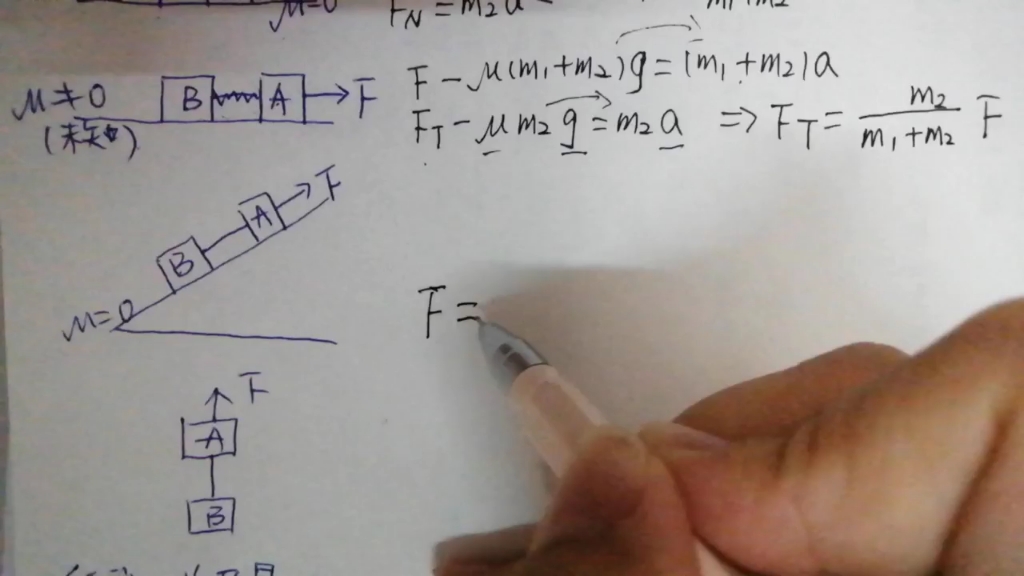 μ=0 F_N=m₂a m₁+m₂
μ≠0 B A F F-μ(m₁+m₂)g=(m₁+m₂)a
(未知) F_T-μm₂g=m₂a ⇒F_T=m₂/(m₁+m₂) F
F
A
B
μ=0 F=
F
A
B